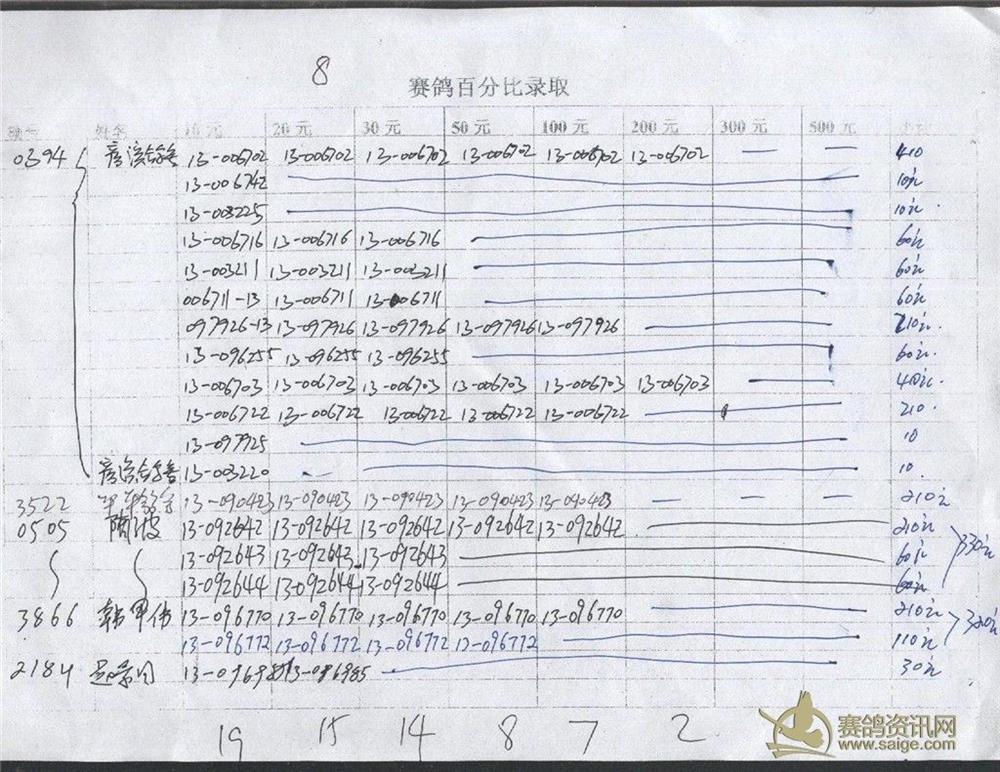 8
赛鸽百分比录取
棚号 姓名 10 元 20 元 30 元 50 元 100 元 200 元 300 元 500 元
0394 13-006702 13-006702 13-006702 13-006702 13-006702 13-006702 — — 410
13-006742 10元
13-003225 10元.
13-006716 13-006716 13-006716 60元
13-003211 13-003211 13-003211 60元
006711-13 13-006711 13-006711 60元
097926-13 13-097926 13-097926 13-097926 13-097926 210元.
13-096255 13-096255 13-096255 60元.
13-006703 13-006703 13-006703 13-006703 13-006703 13-006703 410元.
13-006722 13-006722 13-006722 13-006722 13-006722 210.
13-097925 10
13-003220 10.
3522 13-090423 13-090423 13-090423 13-090423 13-090423 — — — 210元
0505 陶波 13-092642 13-092642 13-092642 13-092642 13-092642 210元
13-092643 13-092643 13-092643 60元 330元
13-092644 13-092644 13-092644 60元
3866 韩甲伟 13-096770 13-096770 13-096770 13-096770 13-096770 210元
13-096772 13-096772 13-096772 13-096772 110元 320元
2184 13-096985 13-096985 30元
19 15 14 8 7 2
赛鸽资讯网
www.saige.com